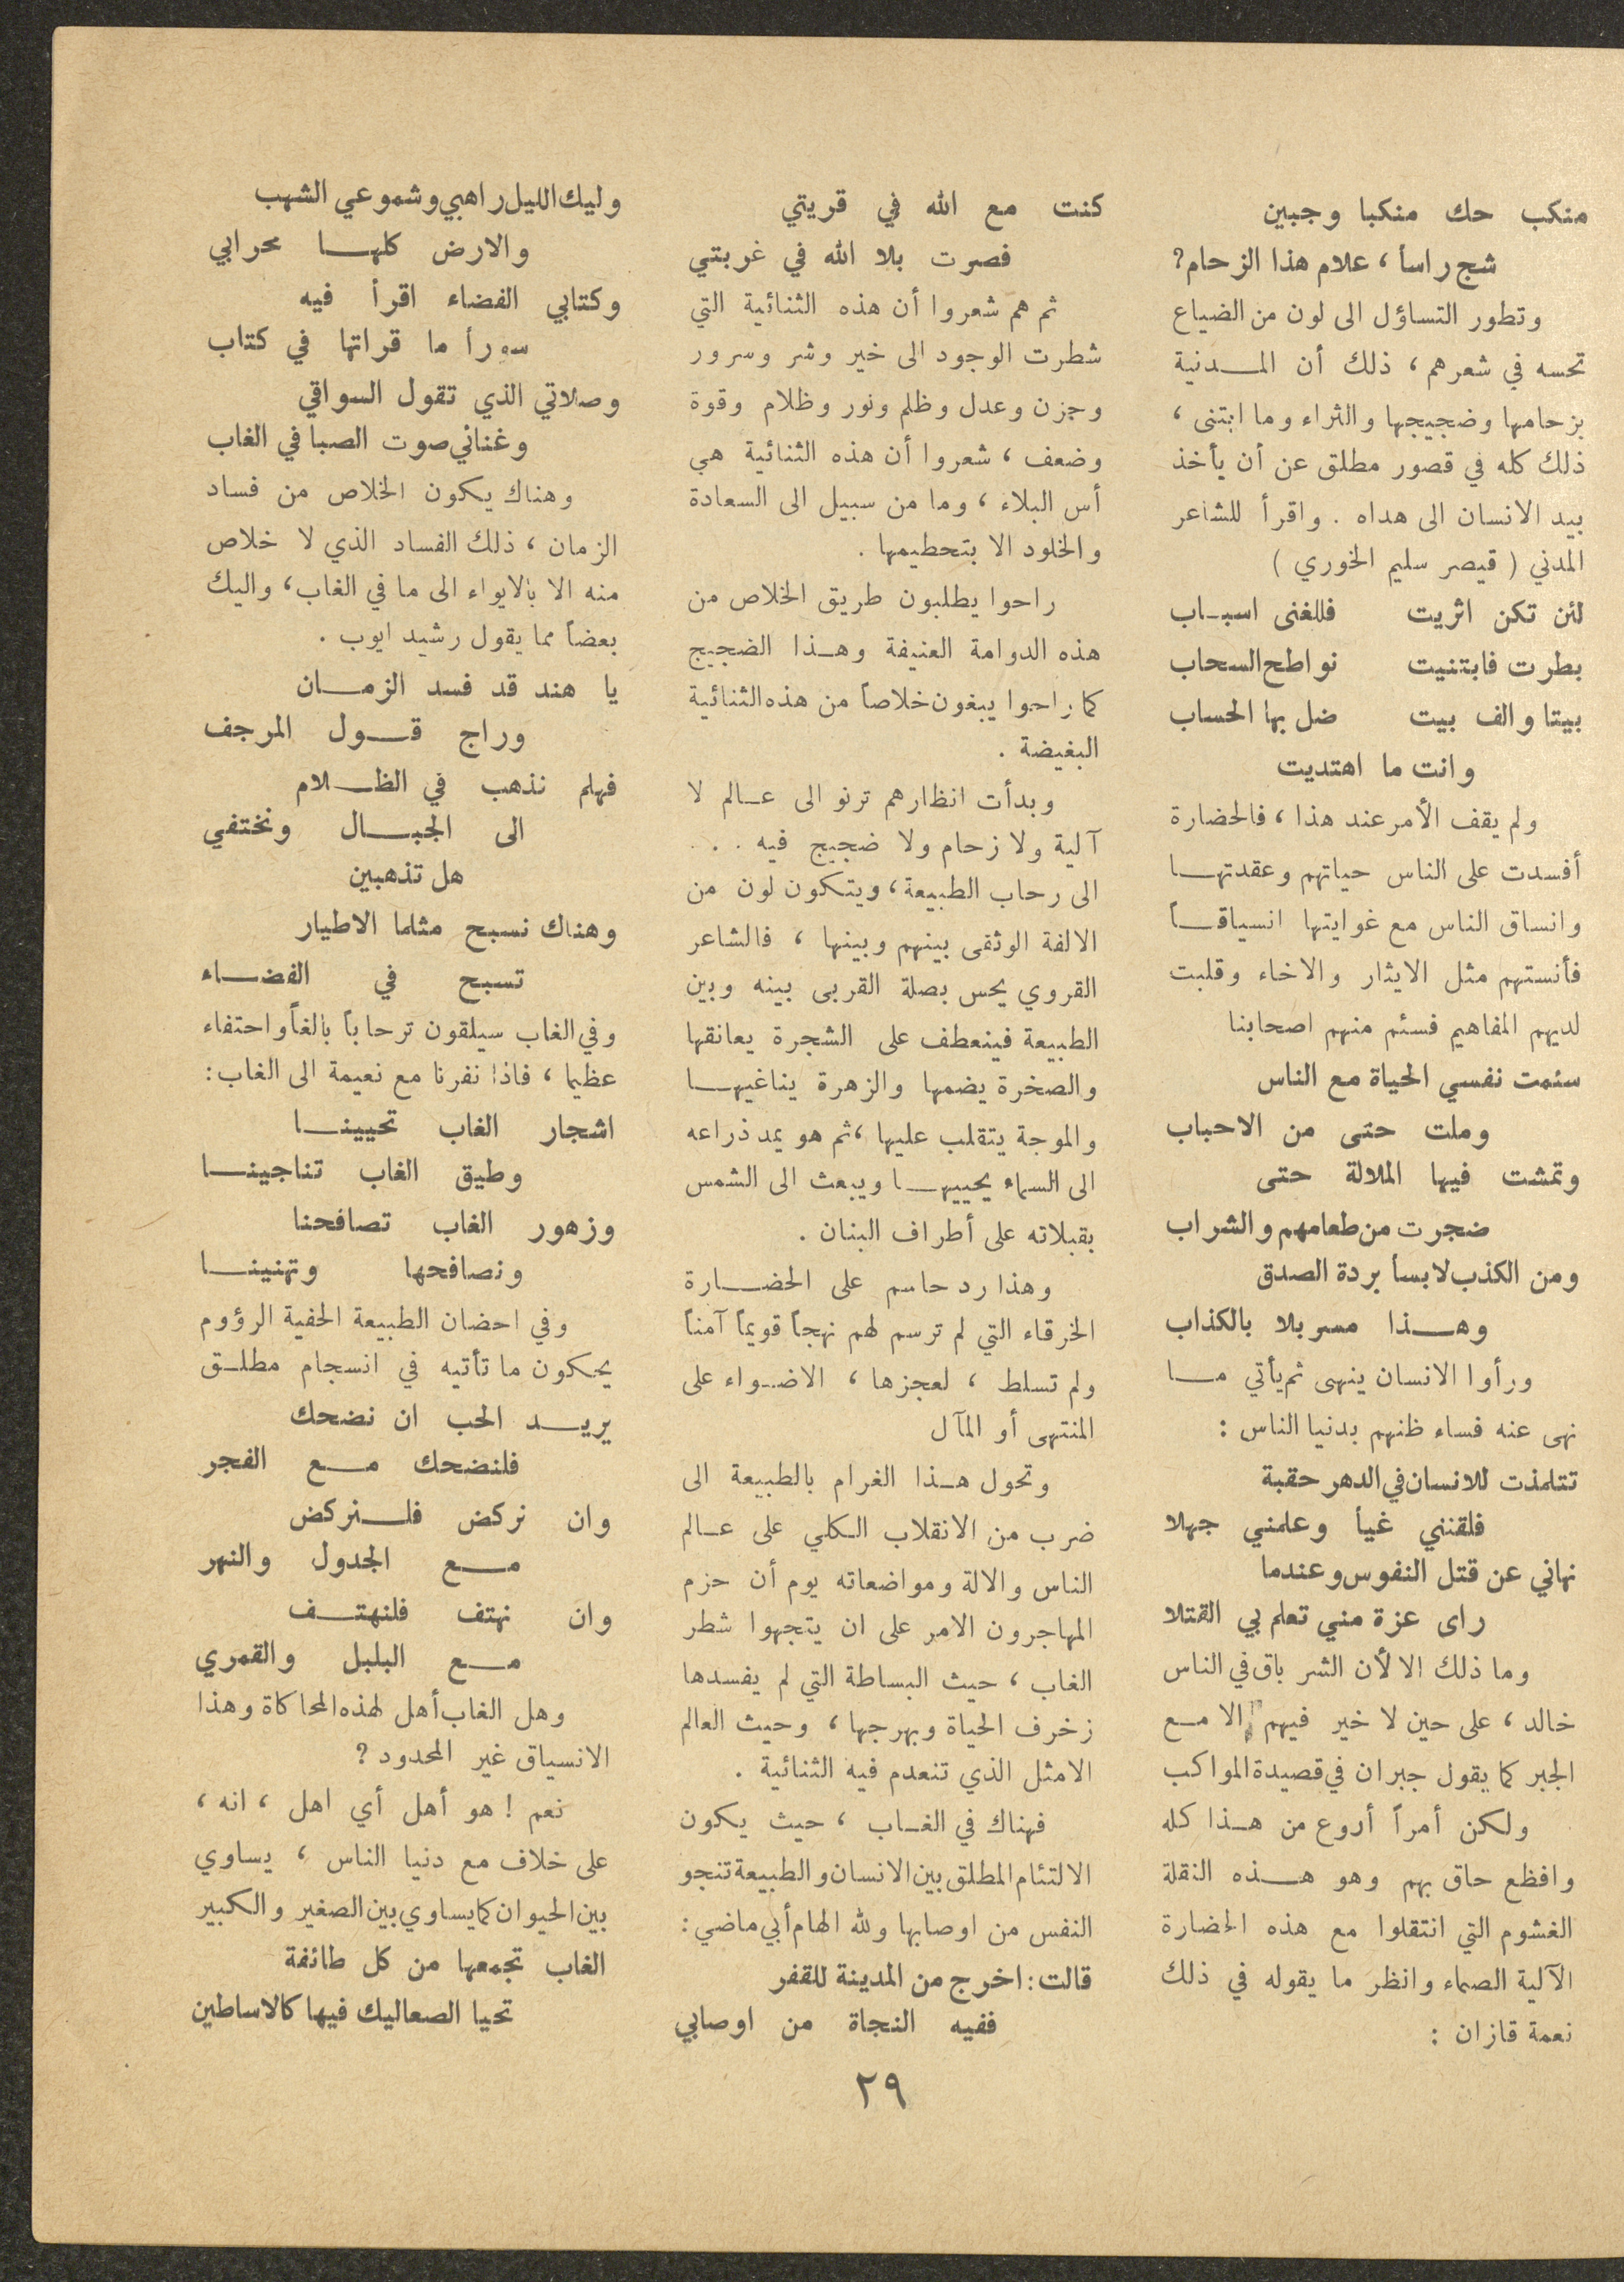 منكب حك منكبا وجبين
شج راسأ ، علام هذا الزحام ؟
وتطور التساؤل الى لون من الضياع
تحسه في شعرهم ، ذلك أن المدنية
بزحامها وضجيجها والثراء وما ابتنى ،
ذلك كله في قصور مطلق عن أن يأخذ
بيد الانسان الى هداه . واقرأ للشاعر
المدني ( قيصر سليم الخوري )
لئن تكن اثريت فللغنى اسباب
بطرت فابتنيت نواطح السحاب
بيتا والف بيت ضل بها الحساب
وانت ما اهتديت
ولم يقف الأمر عند هذا ، فالحضارة
أفسدت على الناس حياتهم وعقدتها
وانساق الناس مع غوايتها انسياقاً
فأنستهم مثل الايثار والاخاء وقلبت
لديهم المفاهيم فسئم منهم اصحابنا
سئمت نفسي الحياة مع الناس
وملت حتى من الاحباب
وتمشت فيها الملالة حتى
ضجرت من طعامهم والشراب
ومن الكذب لابسأ بردة الصدق
وهذا مسربلا بالكذاب
ورأوا الانسان ينهى ثم يأتي ما
نهى عنه فساء ظنهم بدنيا الناس :
تتلمذت للانسان في الدهر حقبة
فلقنني غيأ وعلمني جهلا
نهاني عن قتل النفوس وعندما
راى عزة مني تعلم بي القتلا
وما ذلك الا لأن الشر باق في الناس
خالد ، على حين لا خير فيهم الا مع
الجبر كما يقول جبران في قصيدة المواكب
ولكن أمراً أروع من هذا كله
وافظع حاق بهم وهو هذه النقلة
الغشوم التي انتقلوا مع هذه الحضارة
الآلية الصماء وانظر ما يقوله في ذلك
نعمة قازان :
كنت مع الله في قريتي
فصرت بلا الله في غربتي
ثم هم شعروا أن هذه الثنائية التي
شطرت الوجود الى خير وشر وسرور
وحزن وعدل وظلم ونور وظلام وقوة
وضعف ، شعروا أن هذه الثنائية هي
أس البلاء ، وما من سبيل الى السعادة
والخلود الا بتحطيمها .
راحوا يطلبون طريق الخلاص من
هذه الدوامة العنيفة وهذا الضجيج
كما راحوا يبغون خلاصاً من هذه الثنائية
البغيضة .
وبدأت انظارهم ترنو الى عالم لا
آلية ولا زحام ولا ضجيج فيه . . .
الى رحاب الطبيعة ، ويتكون لون من
الالفة الوثقى بينهم وبينها ، فالشاعر
القروي يحس بصلة القربى بينه وبين
الطبيعة فينعطف على الشجرة يعانقها
والصخرة يضمها والزهرة يناغيها
والموجة يتقلب عليها ، ثم هو يمد ذراعه
الى السماء يحييها ويبعث الى الشمس
بقبلاته على أطراف البنان .
وهذا رد حاسم على الحضارة
الخرقاء التي لم ترسم لهم نهجاً قويماً آمناً
ولم تسلط ، لعجزها ، الاضواء على
المنتهى أو المآل
وتحول هذا الغرام بالطبيعة الى
ضرب من الانقلاب الكلي على عالم
الناس والالة ومواضعاته يوم أن حزم
المهاجرون الامر على ان يتجهوا شطر
الغاب ، حيث البساطة التي لم يفسدها
زخرف الحياة وبهرجها ، وحيث العالم
الامثل الذي تنعدم فيه الثنائية .
فهناك في الغاب ، حيث يكون
الالتئام المطلق بين الانسان والطبيعة تنجو
النفس من اوصابها ولله الهام أبي ماضي :
قالت : اخرج من المدينة للقفر
ففيه النجاة من اوصابي
وليك الليل راهبي وشموعي الشهب
والارض كلها محرابي
وكتابي الفضاء اقرأ فيه
سورأ ما قراتها في كتاب
وصلاتي الذي تقول السواقي
وغنائي صوت الصبا في الغاب
وهناك يكون الخلاص من فساد
الزمان ، ذلك الفساد الذي لا خلاص
منه الا بالايواء الى ما في الغاب ، واليك
بعضاً مما يقول رشيد ايوب .
يا هند قد فسد الزمان
وراج قول المرجف
فهلم نذهب في الظلام
الى الجبال ونختفي
هل تذهبين
وهناك نسبح مثلما الاطيار
تسبح في الفضاء
وفي الغاب سيلقون ترحاباً بالغاً واحتفاء
عظيما ، فاذا نفرنا مع نعيمة الى الغاب :
اشجار الغاب تحيينا
وطيق الغاب تناجينا
وزهور الغاب تصافحنا
ونصافحها وتهنينا
وفي احضان الطبيعة الحفية الرؤوم
يحكون ما تأتيه في انسجام مطلق
يريد الحب ان نضحك
فلنضحك مع الفجر
وان نركض فلنركض
مع الجدول والنهر
وان نهتف فلنهتف
مع البلبل والقمري
وهل الغاب أهل لهذه المحاكاة وهذا
الانسياق غير المحدود ؟
نعم ! هو أهل أي اهل ، انه ،
على خلاف مع دنيا الناس ، يساوي
بين الحيوان كما يساوي بين الصغير والكبير
الغاب تجمعها من كل طائفة
تحيا الصعاليك فيها كالاساطين
٢٩